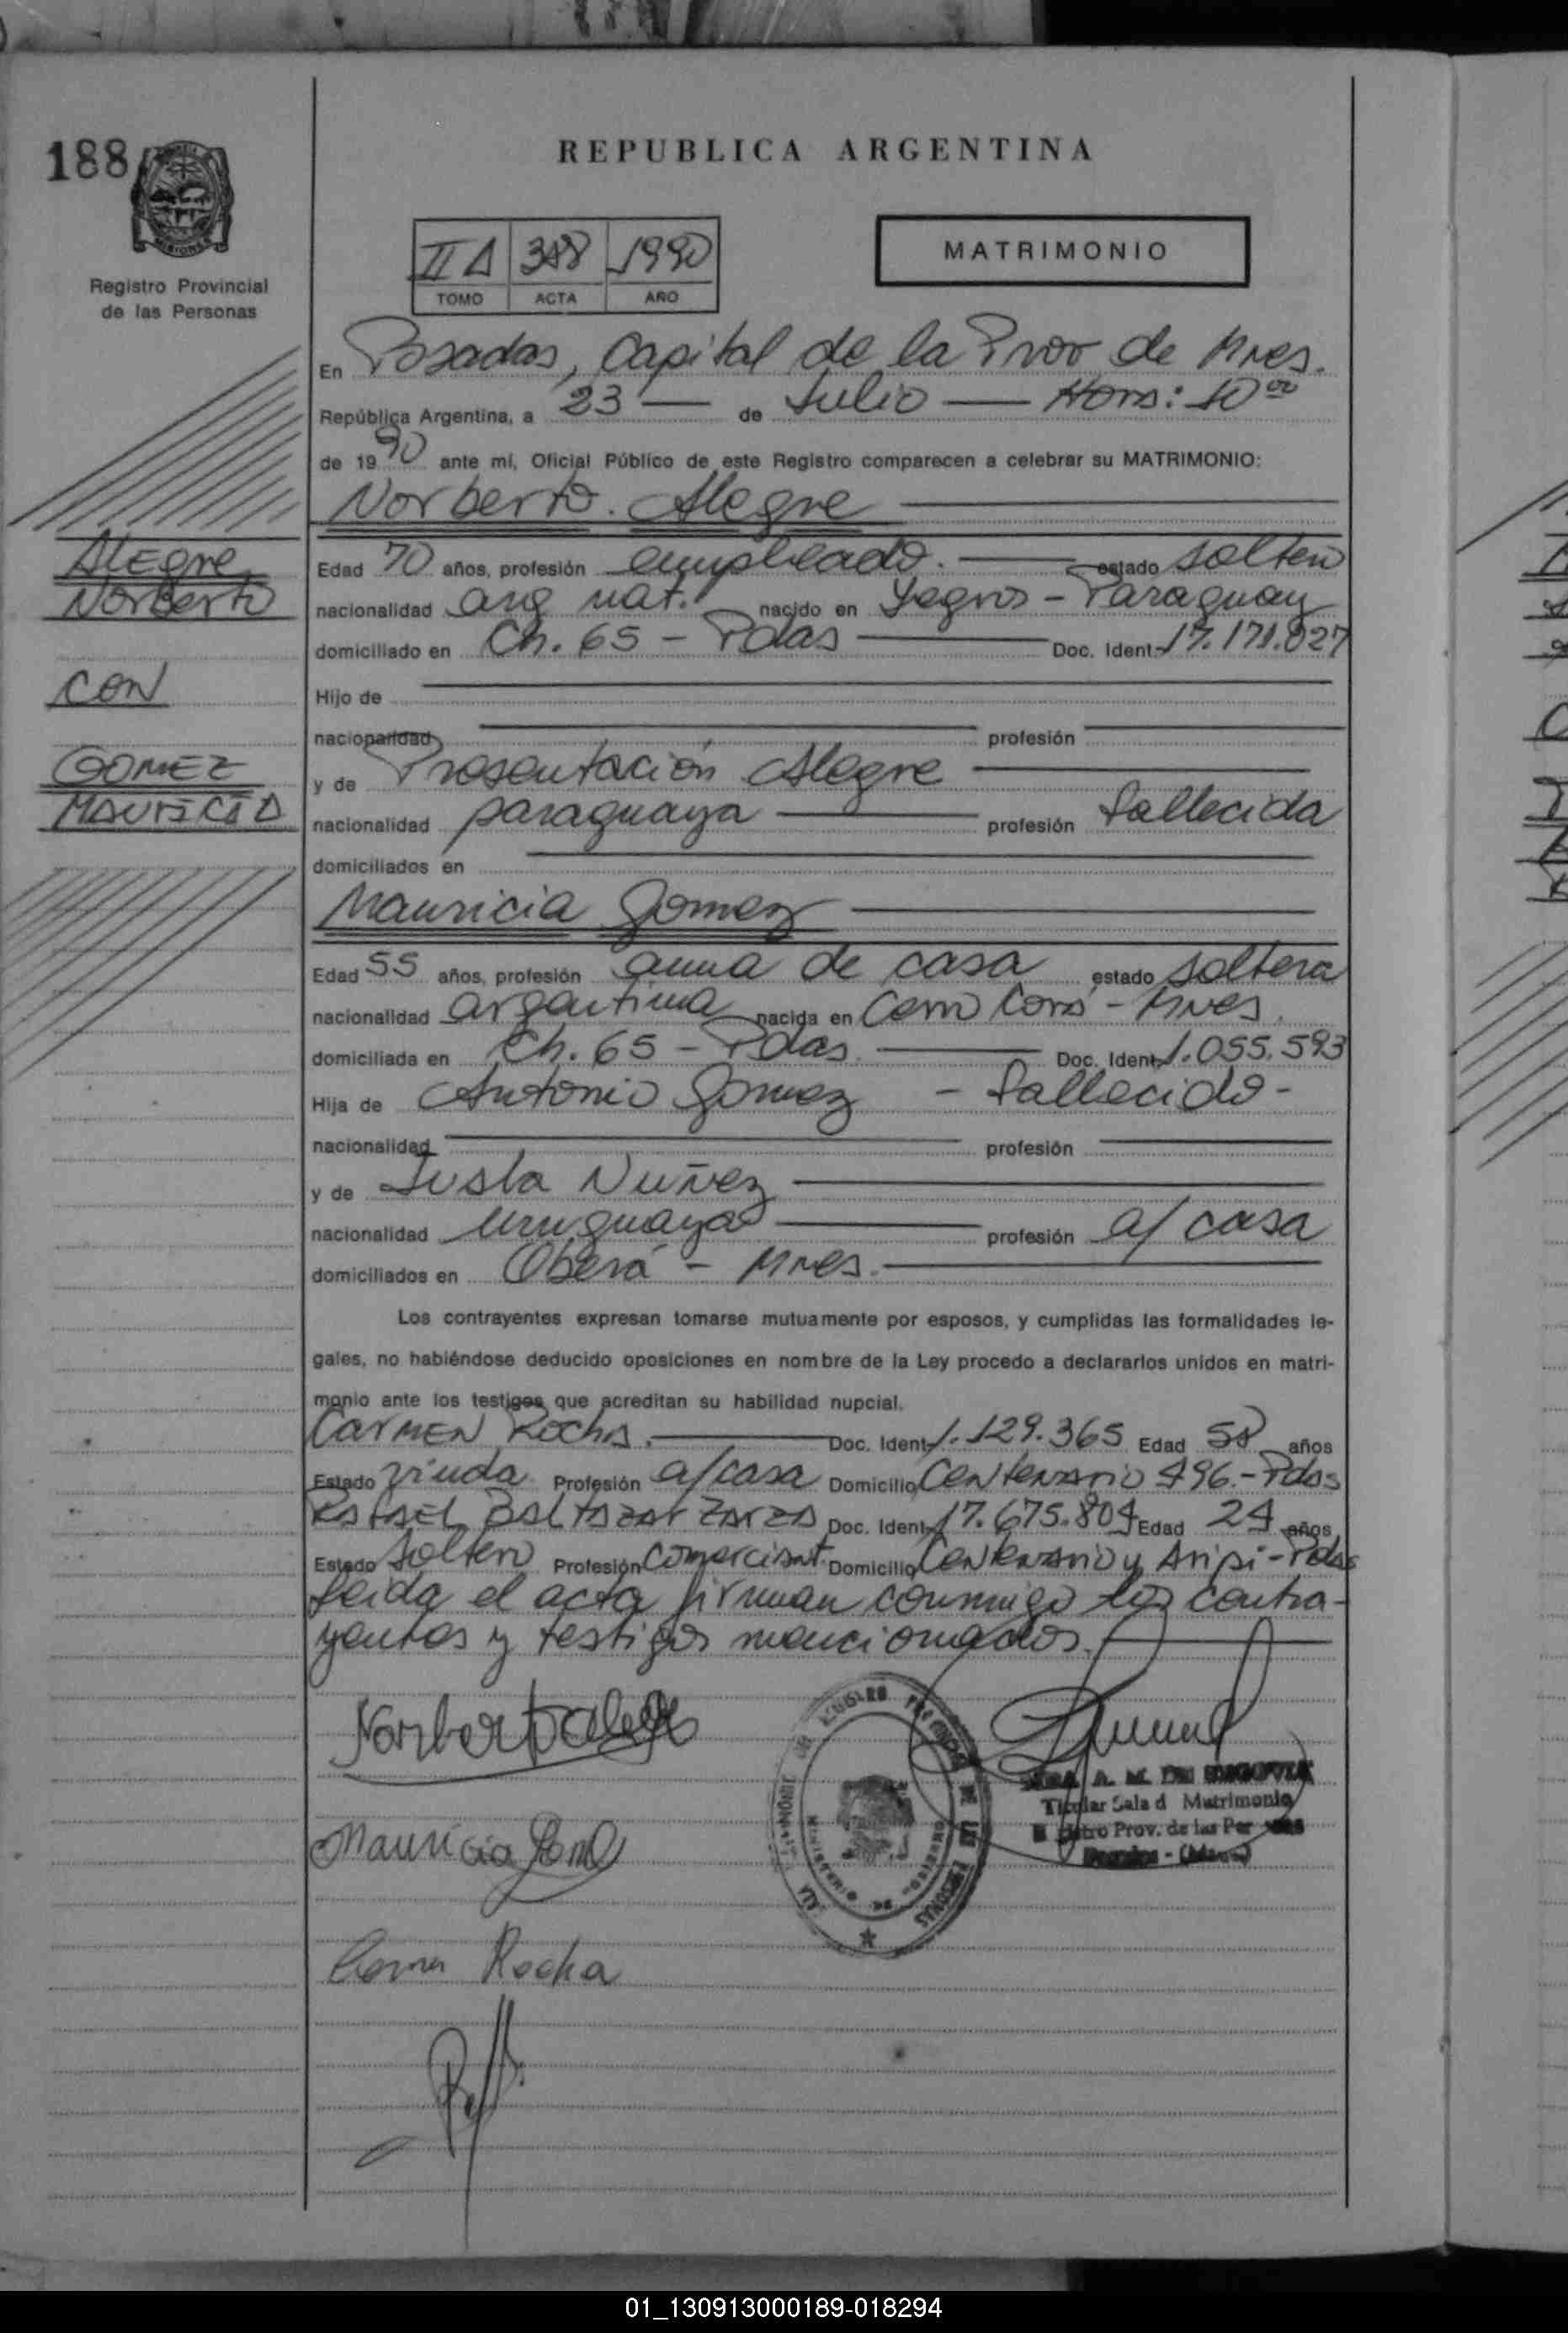 188
REPUBLICA ARGENTINA
MATRIMONIO
II A 388 1990
TOMO ACTA AÑO
Registro Provincial
de las Personas
En Posadas, Capital de la Prov de Mnes.
República Argentina, a 23 — de Julio — Hora: 10 00
de 1990 ante mí, Oficial Público de este Registro comparecen a celebrar su MATRIMONIO:
Norberto. Alegre
ALEGRE
NORBERTO
CON
GOMEZ
MAURICIA
Edad 70 años, profesión empleado. — estado soltero
nacionalidad arg nat. nacido en Yegros - Paraguay
domiciliado en Ch. 65 - Pdas — Doc. Ident. 17.171.027
Hijo de
nacionalidad profesión
y de Presentación Alegre
nacionalidad paraguaya — profesión fallecida
domiciliados en
Mauricia Gomez
Edad 55 años, profesión ama de casa estado soltera
nacionalidad argentina nacida en Cerro Corá - Mnes.
domiciliada en Ch. 65 - Pdas. — Doc. Ident. 1.055.593
Hija de Antonio Gomez - fallecido -
nacionalidad profesión
y de Justa Nuñez
nacionalidad uruguaya — profesión a/ casa
domiciliados en Oberá - Mnes.
Los contrayentes expresan tomarse mutuamente por esposos, y cumplidas las formalidades le-
gales, no habiéndose deducido oposiciones en nombre de la Ley procedo a declararlos unidos en matri-
monio ante los testigos que acreditan su habilidad nupcial.
CARMEN ROCHA. — Doc. Ident. 1.129.365 Edad 58 años
Estado viuda Profesión a/casa Domicilio Centenario 496.- Pdas
RAFAEL BALTAZAR ZARZA Doc. Ident. 17.675.804 Edad 24 años
Estado soltero Profesión Comerciant. Domicilio Centenario y Aripi - Pdas
Leida el acta firman conmigo los contra-
yentes y testigos mencionados.
Norberto Alegre
A. M. DE SEGOVIA
Titular Sala d Matrimonio
Prov. de las Per
Mauricia Gom
Rocha
01_130913000189-018294